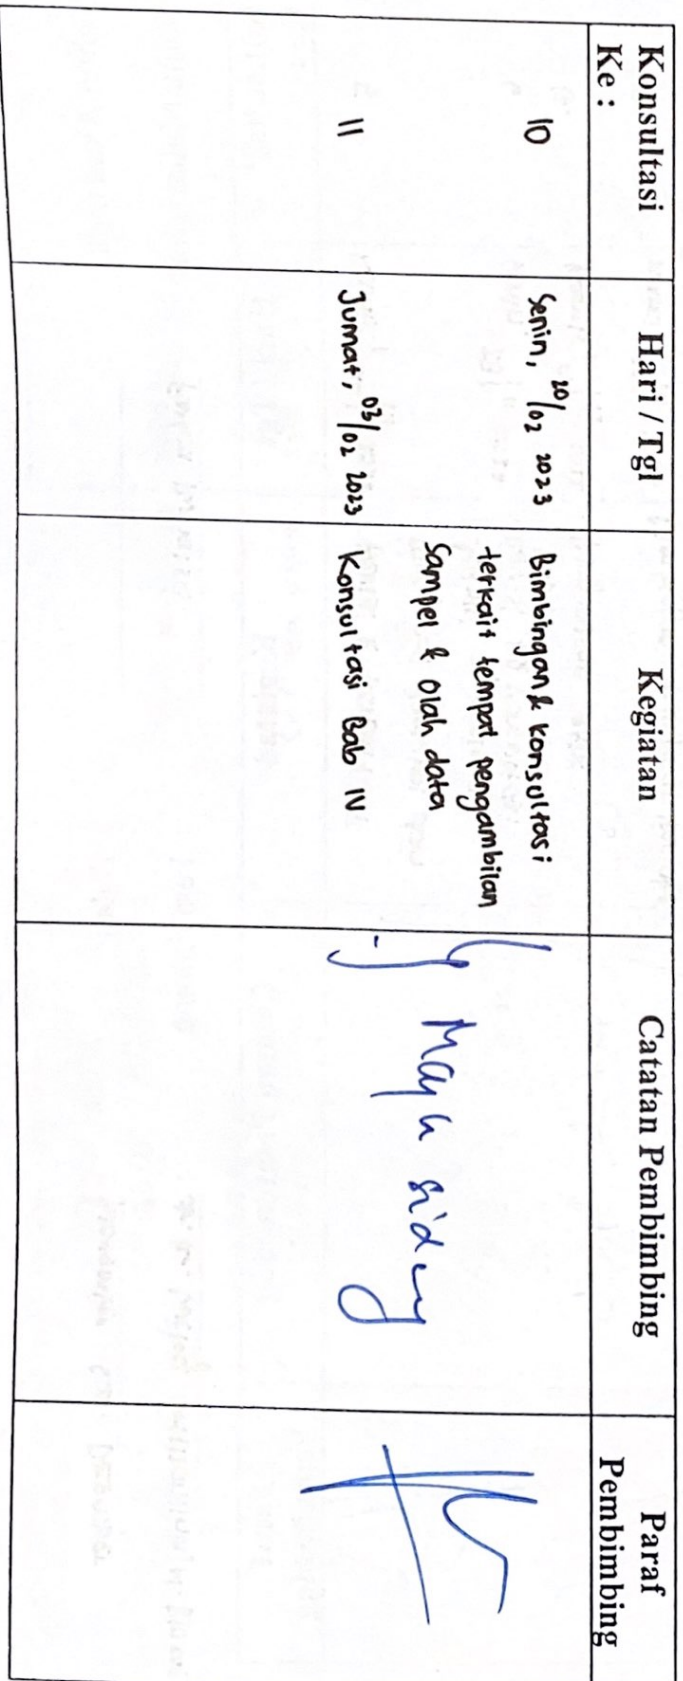 Konsultasi
Ke :
Hari / Tgl
Kegiatan
Catatan Pembimbing
Paraf
Pembimbing
10
Senin, 20/02 2023
Bimbingan & konsultasi
terkait tempat pengambilan
sampel & olah data
11
Jumat, 03/02 2023
Konsultasi Bab IV
Maju sidang